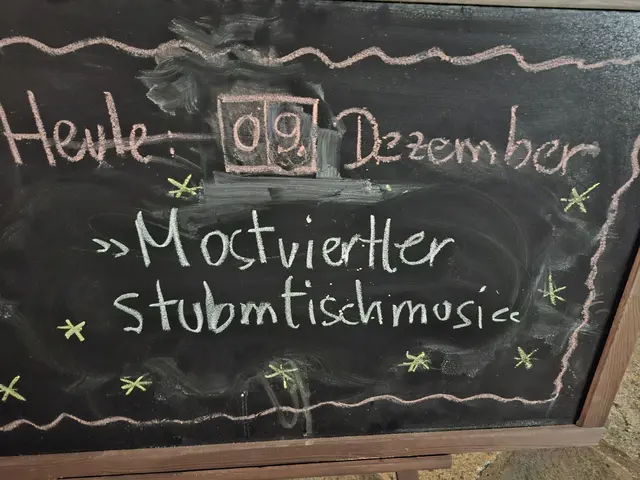 Heute: 09. Dezember
»Mostviertler
Stubmtischmusi«